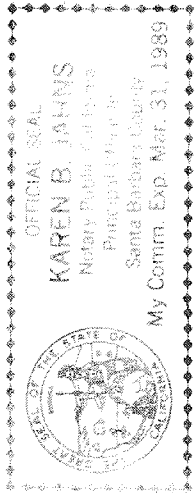 OFFICIAL SEAL
KAREN B. JAHNS
Notary Public-California
Principal Office In
Santa Barbara County
My Comm. Exp. Mar. 31, 1989
SEAL OF THE STATE OF CALIFORNIA